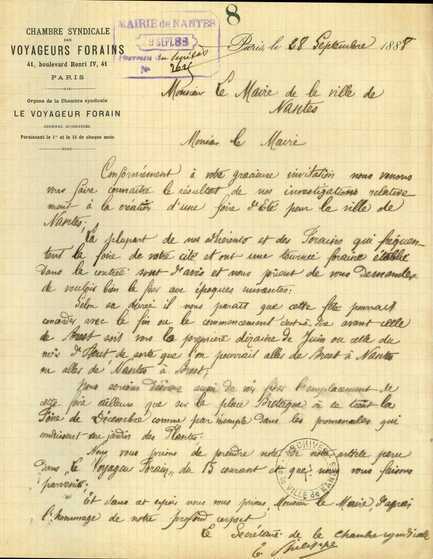 8
CHAMBRE SYNDICALE
DES
VOYAGEURS FORAINS
41, boulevard Henri IV, 41
PARIS
Organe de la Chambre syndicale
LE VOYAGEUR FORAIN
Paraissant le 1er et le 15 de chaque mois.
MAIRIE de NANTES
SEPT. 88
No 2625
Paris le 28 Septembre 1888
Monsieur le Maire de la ville de
Nantes
Monsieur le Maire
Conformément à votre gracieuse invitation nous venons
vous faire connaître le résultat de nos investigations relative
ment à la création d'une foire d'Été pour la ville de
Nantes.
La plupart de nos adhérents et des Forains qui fréquen
tent la foire de votre cité et ont une tournée foraine établie
dans la contrée sont d'avis et nous prient de vous demander
de vouloir bien la fixer aux époques suivantes:
Selon sa durée il nous paraît que cette fête pourrait
avec la fin ou le commencement avant celle
de Brest soit vers la première dizaine de Juin ou celle du
mois d'Août de sorte que l'on pourrait aller de Brest à Nantes
ou aller de Nantes à Brest.
Nous serions de voir l'emplacement de
cette foire ailleurs que sur la place Bretagne où se tient la
Foire de Décembre comme par exemple dans les promenades qui
conduisent au jardin des Plantes.
Nous vous prions de prendre note de notre article paru
dans "Le Voyageur Forain" du 15 courant et que nous vous faisons
parvenir.
Et dans cet espoir nous vous prions, Monsieur le Maire, d'agréer
l'hommage de notre profond respect
Le Secrétaire de la chambre syndicale
ARCHIVES
VILLE de NANTES